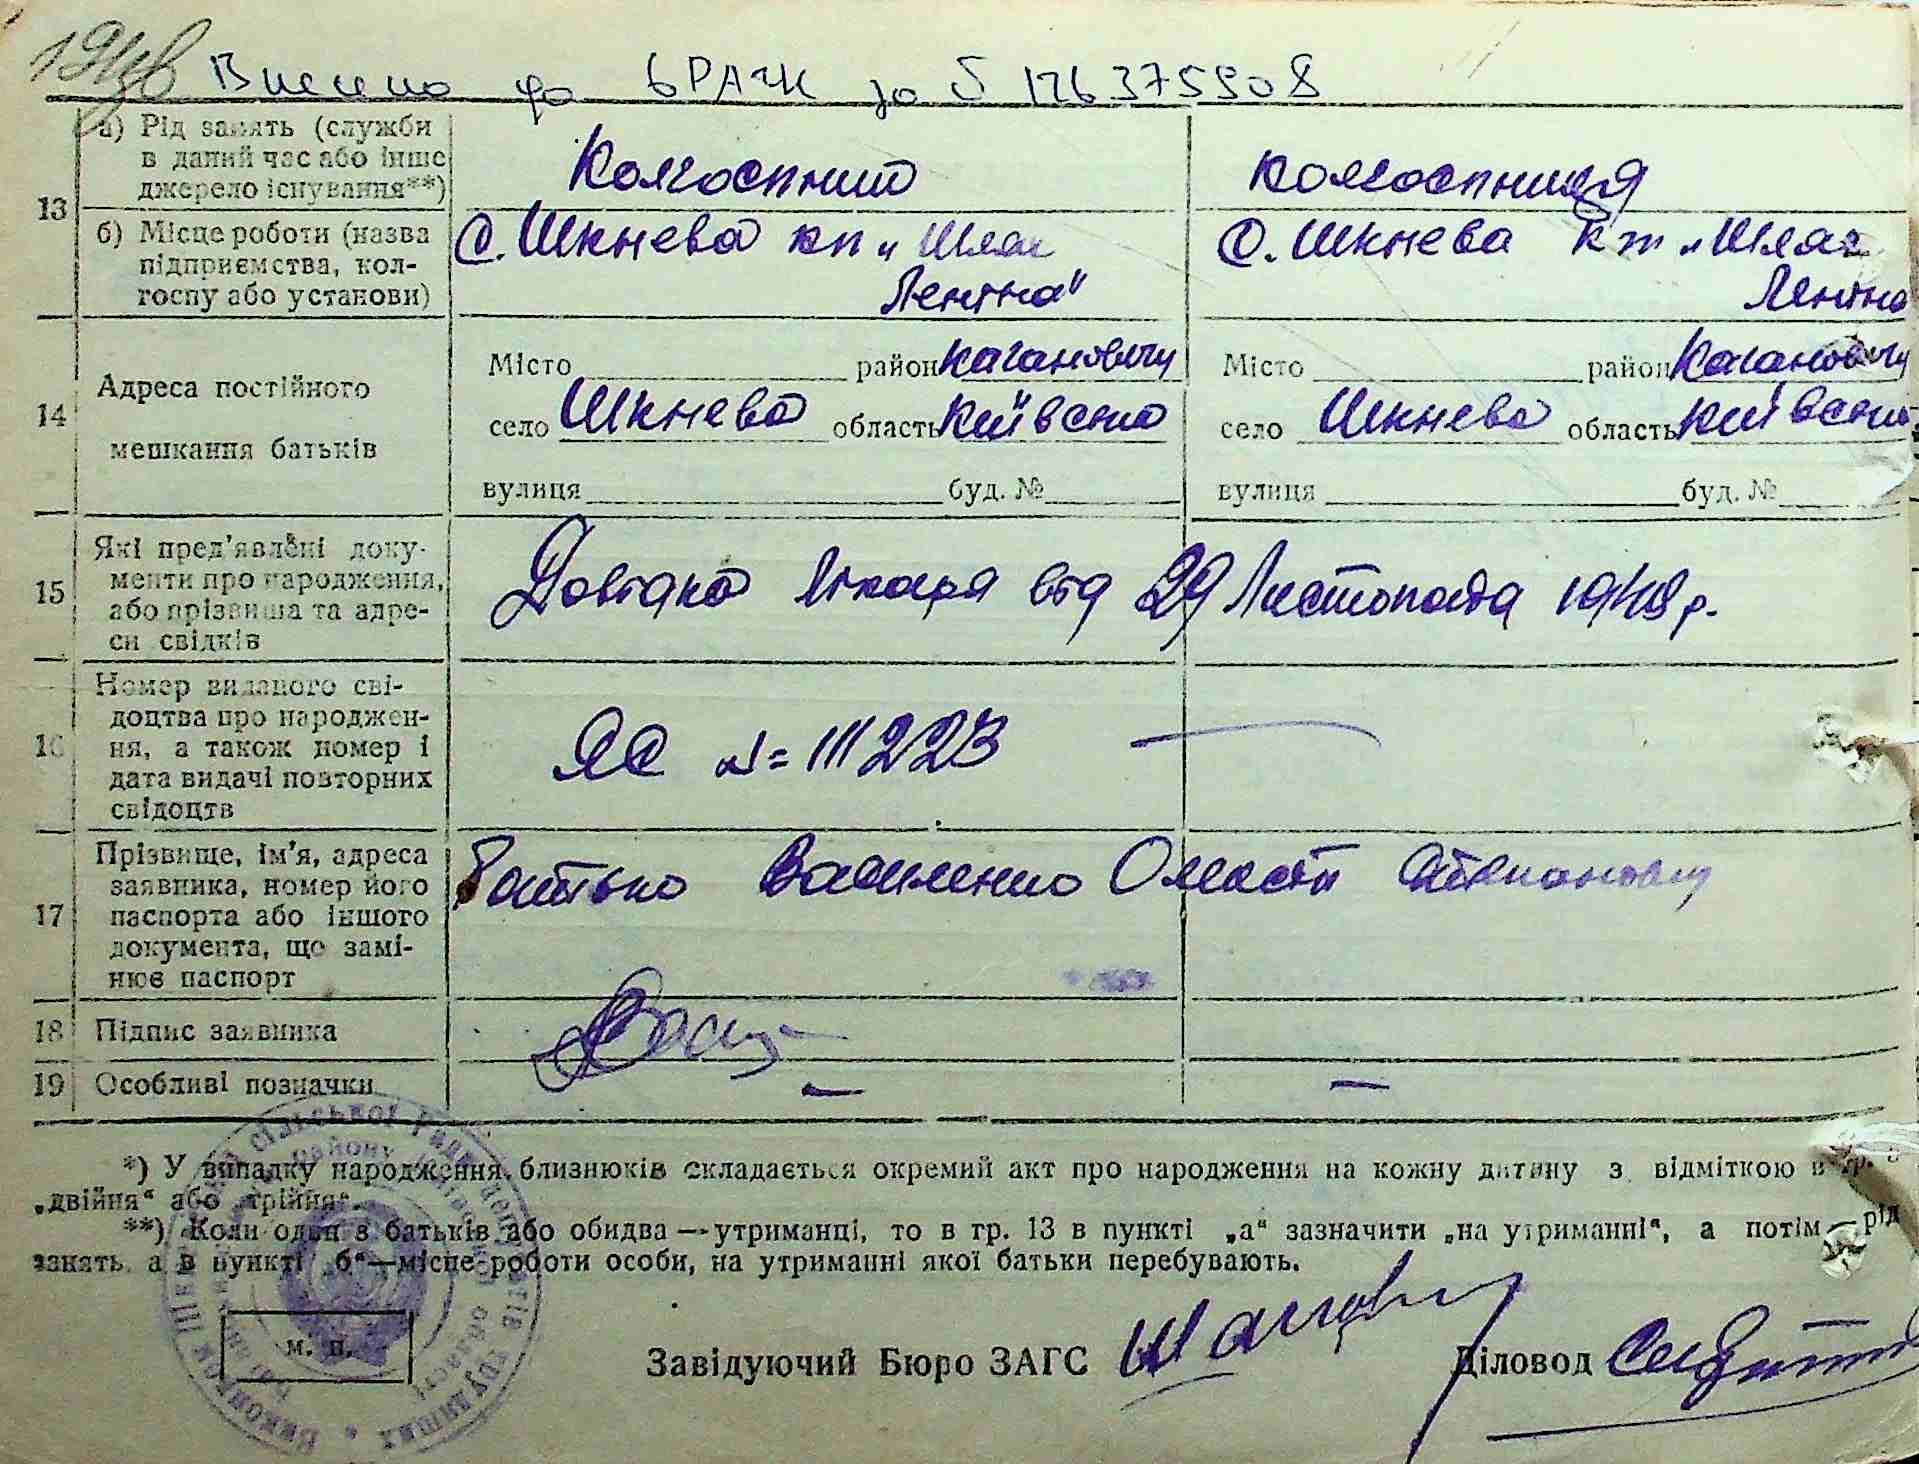 Внесено до ЄРАЧК за № 126375908
а) Рід занять (служби в даний час або інше джерело існування**)
Колгоспник
колгоспниця
13
б) Місце роботи (назва підприємства, колгоспу або установи)
с. Шкнева кп „Шлях Леніна"
с. Шкнева кп „Шлях Леніна
14
Адреса постійного мешкання батьків
Місто район Кагановичи
село Шкнева область Київська
вулиця буд. №
Місто район Кагановичи
село Шкнева область Київська
вулиця буд. №
15
Які пред'явлені документи про народження, або прізвища та адреси свідків
Довідка лікаря від 29 Листопада 1948 р.
16
Номер виданого свідоцтва про народження, а також номер і дата видачі повторних свідоцтв
ЯС № 111223 —
17
Прізвище, ім'я, адреса заявника, номер його паспорта або іншого документа, що замінює паспорт
Батько Василенко Олексій Степанович
18
Підпис заявника
19
Особливі позначки
— —
*) У випадку народження близнюків складається окремий акт про народження на кожну дитину з відміткою в гр.
„двійня“ або „трійня“.
**) Коли один з батьків або обидва — утриманці, то в гр. 13 в пункті „а“ зазначити „на утриманні“, а потім — рід
занять, а в пункті „б“ — місце роботи особи, на утриманні якої батьки перебувають.
м. п.
Завідуючий Бюро ЗАГС
Діловод